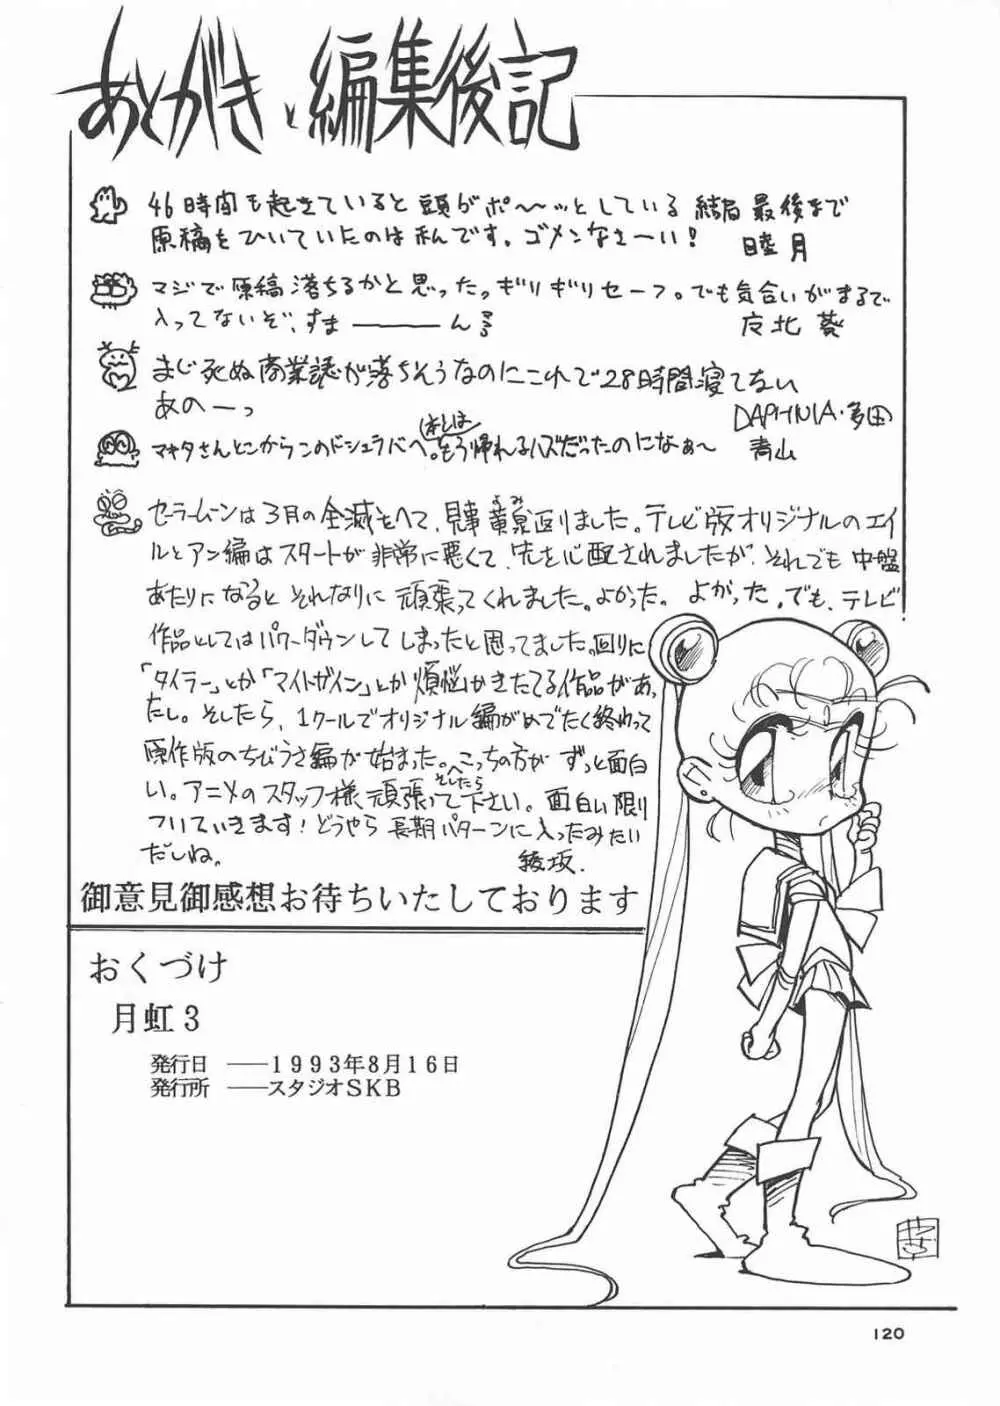 あとがきと編集後記
46時間も起きていると頭がポ〜〜ッとしている 結局最後まで
原稿をひいていたのは私です。ゴメンなさーい! 睦月
マジで原稿落ちるかと思ったっ ギリギリセーフ。でも気合いがまるで
入ってないぞ、すま———ん
北 葵
まじ死ぬ商業誌が落ちそうなのにこれで28時間寝てない
あのーっ
DAPHNIA・多田
マキタさんとこからこのドシュラバへ。ほんとはもう帰れるハズだったのになぁ〜 青山
セーラームーンは3月の全滅をへて、見事黄泉返りました。テレビ版オリジナルのエイ
よみ
ルとアン編はスタートが非常に悪くて、先を心配されましたが、それでも中盤
あたりになるとそれなりに頑張ってくれました。よかった。よかった。でも、テレビ
作品としてはパワーダウンしてしまったと思ってました。回りに
「タイラー」とか「マイトガイン」とか煩悩かきたてる作品があっ
たし。そしたら、1クールでオリジナル編がめでたく終わって
原作版のちびうさ編が始まった。そしたらこっちの方がずっと面白
い。アニメのスタッフ様、頑張って下さい。面白い限り
ついていきます!どうやら長期パターンに入ったみたい
だしね。 綾坂.
御意見御感想お待ちいたしております
おくづけ
月虹3
発行日 ――1993年8月16日
発行所 ――スタジオSKB
120